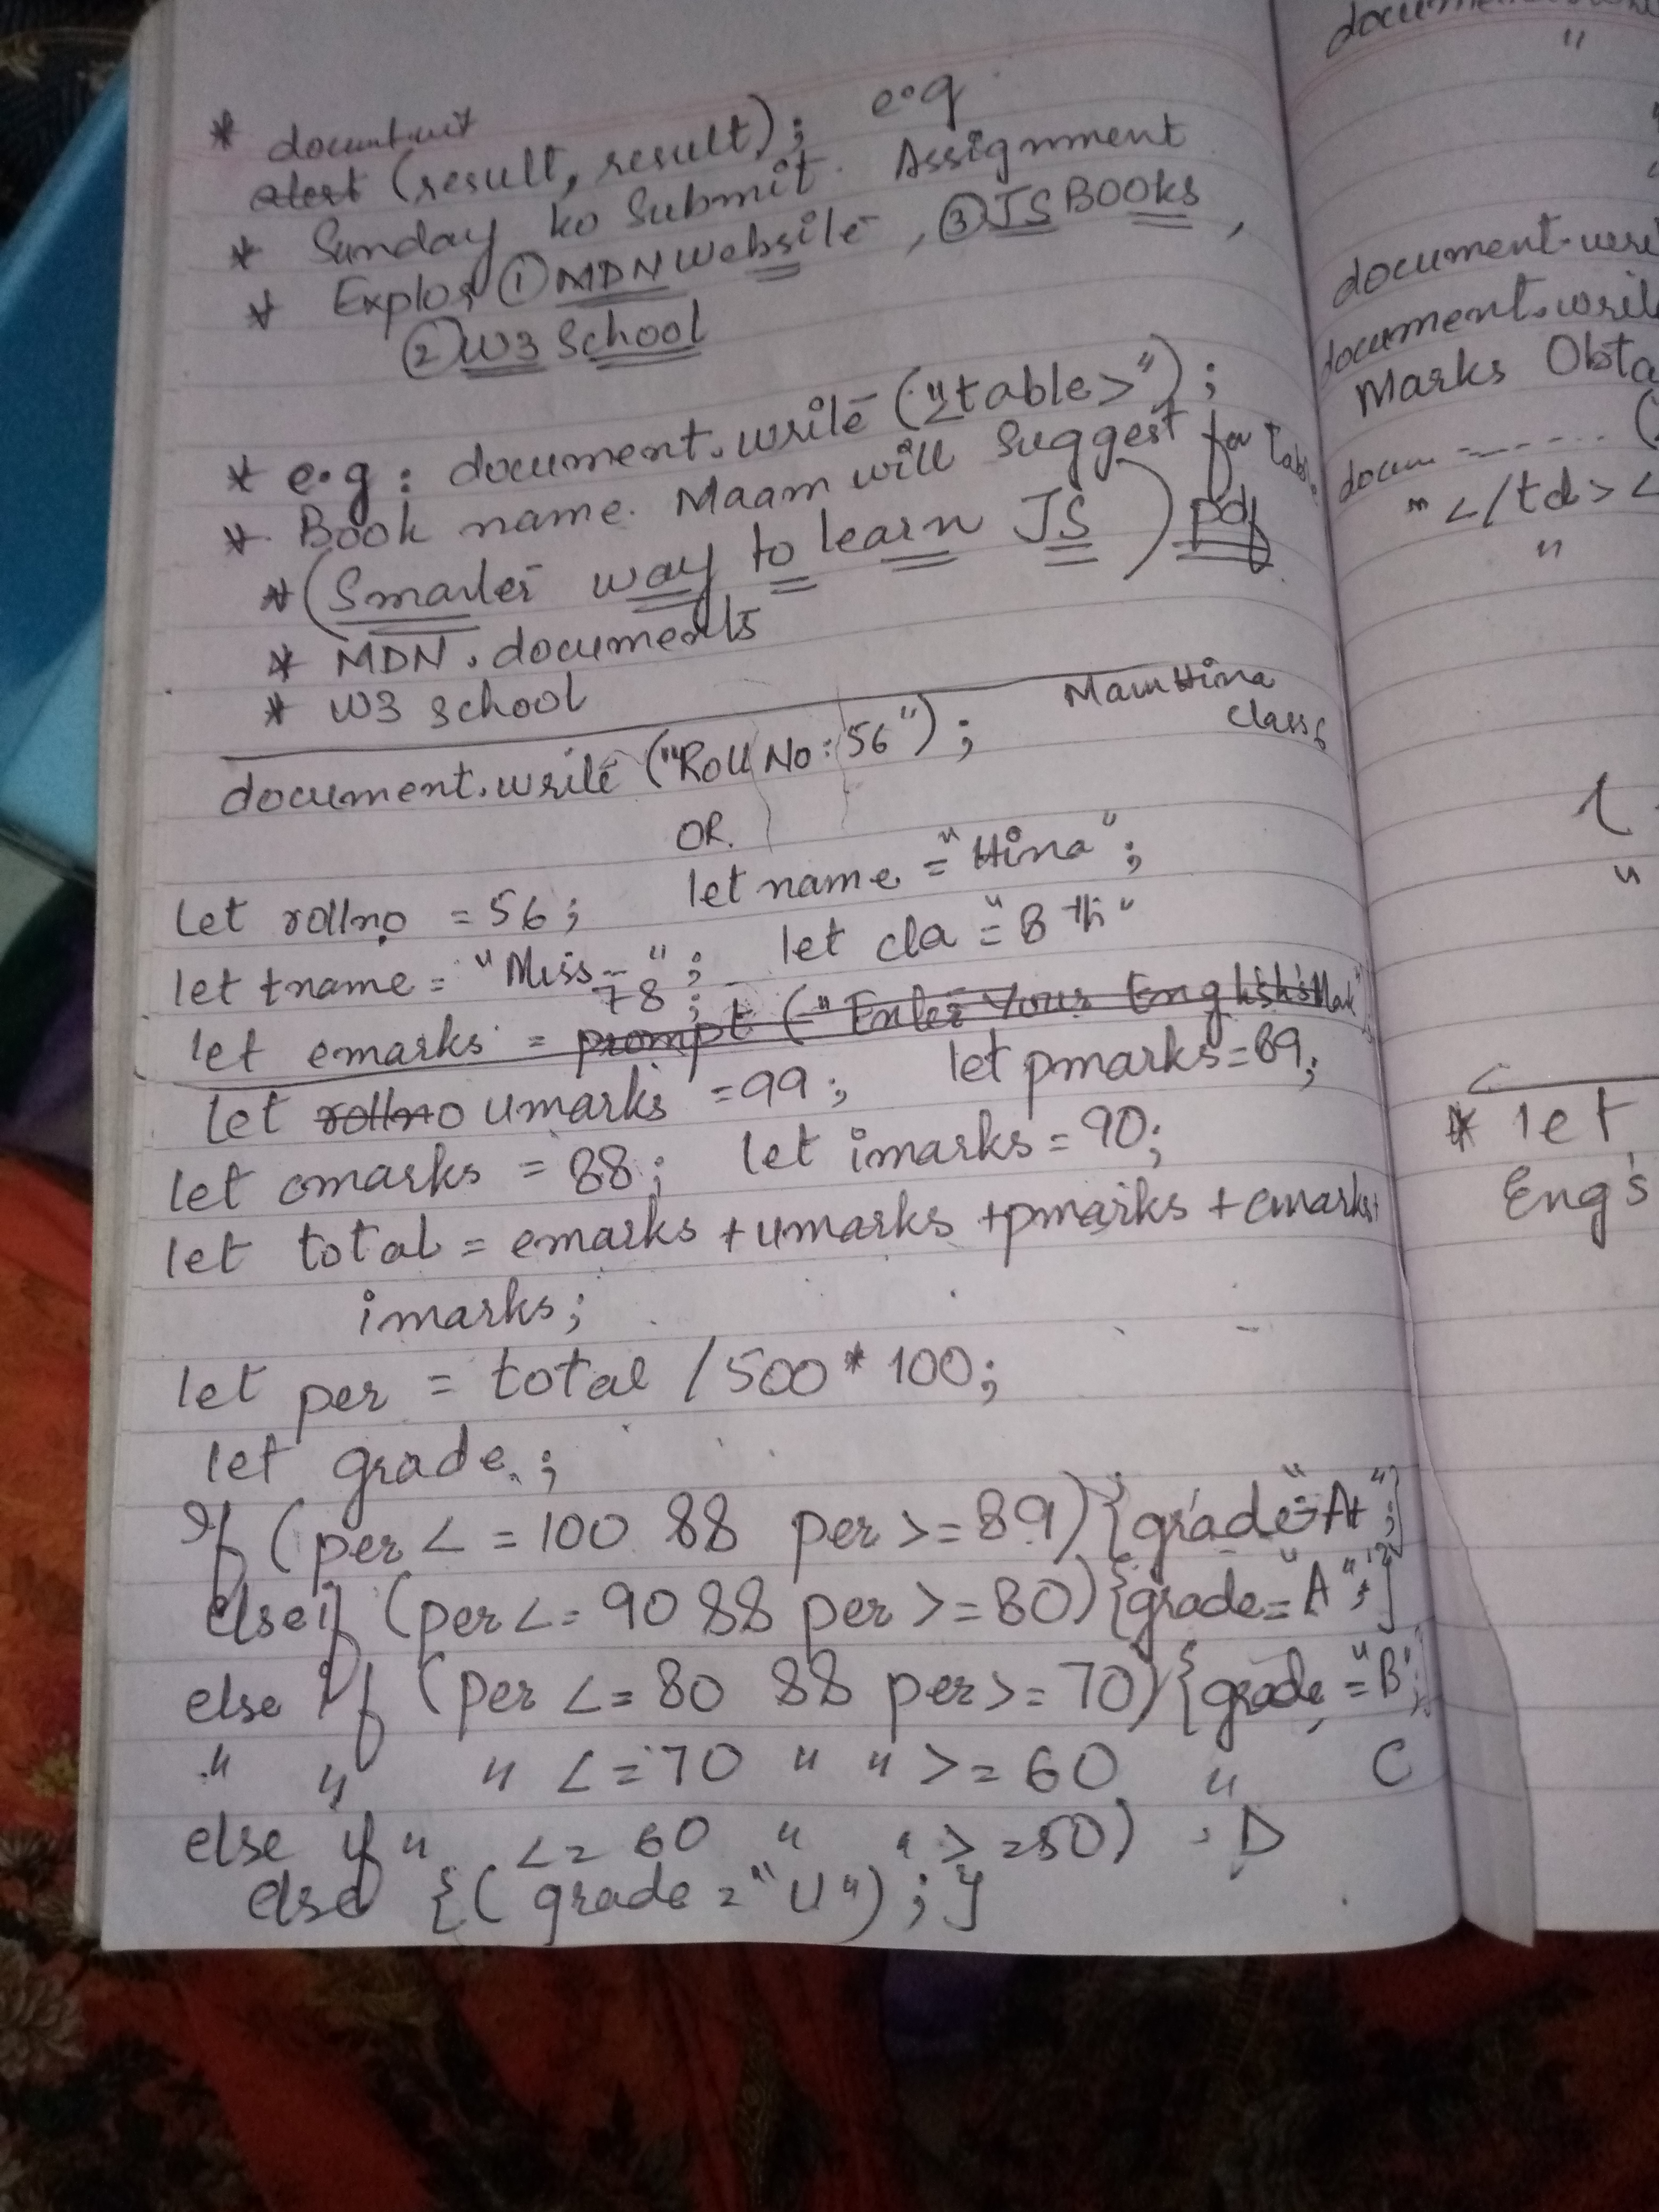 * document.writ
alert (result, result); e.g
* Sunday ko Submit Assignment
* Explor ① MDN Website, ③ JS BOOks,
② W3 School
* e.g: document.write ("<table>");
* Book name. Maam will suggest for Table
* (Smarter way to learn JS) pdf
* MDN. documents
* W3 School
Mam Hina
class 6
document.write ("Roll No: 56");
OR.
Let rollno = 56; let name = "Hina";
let tname = "Miss--"; let cla = "8 th"
78;
let emarks = prompt ("Enter Your English's Mark"
let rollno umarks = 99; let pmarks = 89;
let cmarks = 88; let imarks = 90;
let total = emarks + umarks + pmarks + cmarks +
imarks;
let per = total / 500 * 100;
let grade;
If (per < = 100 88 per > = 89) {grade = "A+";}
elseif (per <= 90 88 per >= 80) {grade = "A";}
else if (per <= 80 88 per >= 70) {grade = "B";
" " " <= 70 " " >= 60 " C
else if " <= 60 " " >= 50) , D
else {( grade = "U"); }
document.wri
document.writ
Marks Obta
docum ------- (
" </td> <
"
* let
Eng's